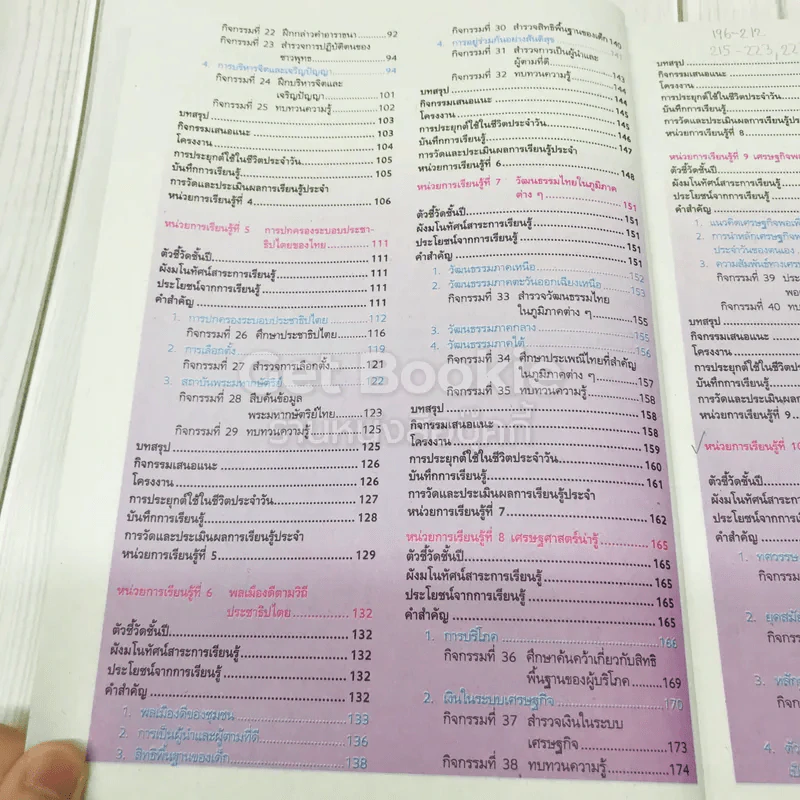 กิจกรรมที่ 22 ฝึกกล่าวคำอาราธนา 92
กิจกรรมที่ 23 สำรวจการปฏิบัติตนของ
ชาวพุทธ 94
4. การบริหารจิตและเจริญปัญญา 94
กิจกรรมที่ 24 ฝึกบริหารจิตและ
เจริญปัญญา 101
กิจกรรมที่ 25 ทบทวนความรู้ 102
บทสรุป 103
กิจกรรมเสนอแนะ 103
โครงงาน 104
การประยุกต์ใช้ในชีวิตประจำวัน 105
บันทึกการเรียนรู้ 105
การวัดและประเมินผลการเรียนรู้ประจำ
หน่วยการเรียนรู้ที่ 4 106
หน่วยการเรียนรู้ที่ 5 การปกครองระบอบประชา-
ธิปไตยของไทย 111
ตัวชี้วัดชั้นปี 111
ผังมโนทัศน์สาระการเรียนรู้ 111
ประโยชน์จากการเรียนรู้ 111
คำสำคัญ 111
1. การปกครองระบอบประชาธิปไตย 112
กิจกรรมที่ 26 ศึกษาประชาธิปไตย 116
2. การเลือกตั้ง 119
กิจกรรมที่ 27 สำรวจการเลือกตั้ง 121
3. สถาบันพระมหากษัตริย์ 122
กิจกรรมที่ 28 สืบค้นข้อมูล
พระมหากษัตริย์ไทย 123
กิจกรรมที่ 29 ทบทวนความรู้ 125
บทสรุป 125
กิจกรรมเสนอแนะ 126
โครงงาน 126
การประยุกต์ใช้ในชีวิตประจำวัน 127
บันทึกการเรียนรู้ 128
การวัดและประเมินผลการเรียนรู้ประจำ
หน่วยการเรียนรู้ที่ 5 129
หน่วยการเรียนรู้ที่ 6 พลเมืองดีตามวิถี
ประชาธิปไตย 132
ตัวชี้วัดชั้นปี 132
ผังมโนทัศน์สาระการเรียนรู้ 132
ประโยชน์จากการเรียนรู้ 132
คำสำคัญ 132
1. พลเมืองดีของชุมชน 133
2. การเป็นผู้นำและผู้ตามที่ดี 136
3. สิทธิพื้นฐานของเด็ก 138
กิจกรรมที่ 30 สำรวจสิทธิพื้นฐานของเด็ก 140
4. การอยู่ร่วมกันอย่างสันติสุข 141
กิจกรรมที่ 31 สำรวจการเป็นผู้นำและ
ผู้ตามที่ดี 143
กิจกรรมที่ 32 ทบทวนความรู้ 144
บทสรุป 144
กิจกรรมเสนอแนะ 145
โครงงาน 145
การประยุกต์ใช้ในชีวิตประจำวัน 146
บันทึกการเรียนรู้ 147
การวัดและประเมินผลการเรียนรู้ประจำ
หน่วยการเรียนรู้ที่ 6 148
หน่วยการเรียนรู้ที่ 7 วัฒนธรรมไทยในภูมิภาค
ต่าง ๆ 151
ตัวชี้วัดชั้นปี 151
ผังมโนทัศน์สาระการเรียนรู้ 151
ประโยชน์จากการเรียนรู้ 151
คำสำคัญ 151
1. วัฒนธรรมภาคเหนือ 152
2. วัฒนธรรมภาคตะวันออกเฉียงเหนือ 153
กิจกรรมที่ 33 สำรวจวัฒนธรรมไทย
ในภูมิภาคต่าง ๆ 155
3. วัฒนธรรมภาคกลาง 155
4. วัฒนธรรมภาคใต้ 156
กิจกรรมที่ 34 ศึกษาประเพณีไทยที่สำคัญ
ในภูมิภาคต่าง ๆ 157
กิจกรรมที่ 35 ทบทวนความรู้ 158
บทสรุป 158
กิจกรรมเสนอแนะ 158
โครงงาน 159
การประยุกต์ใช้ในชีวิตประจำวัน 160
บันทึกการเรียนรู้ 161
การวัดและประเมินผลการเรียนรู้ประจำ
หน่วยการเรียนรู้ที่ 7 162
หน่วยการเรียนรู้ที่ 8 เศรษฐศาสตร์น่ารู้ 165
ตัวชี้วัดชั้นปี 165
ผังมโนทัศน์สาระการเรียนรู้ 165
ประโยชน์จากการเรียนรู้ 165
คำสำคัญ 165
1. การบริโภค 166
กิจกรรมที่ 36 ศึกษาค้นคว้าเกี่ยวกับสิทธิ
พื้นฐานของผู้บริโภค 169
2. เงินในระบบเศรษฐกิจ 170
กิจกรรมที่ 37 สำรวจเงินในระบบ
เศรษฐกิจ 173
กิจกรรมที่ 38 ทบทวนความรู้ 174
196-212
215-223, 22
บทสรุป
กิจกรรมเสนอแนะ
โครงงาน
การประยุกต์ใช้ในชีวิตประจำวัน
บันทึกการเรียนรู้
การวัดและประเมินผลการเรียนรู้ประ
หน่วยการเรียนรู้ที่ 8
หน่วยการเรียนรู้ที่ 9 เศรษฐกิจพอ
ตัวชี้วัดชั้นปี
ผังมโนทัศน์สาระการเรียนรู้
ประโยชน์จากการเรียนรู้
คำสำคัญ
1. แนวคิดเศรษฐกิจพอเพี
2. การนำหลักเศรษฐกิจพ
ประจำวันของตนเอง
3. ความสัมพันธ์ทางเศร
กิจกรรมที่ 39 ประ
พอ
กิจกรรมที่ 40 ทบ
บทสรุป
กิจกรรมเสนอแนะ
โครงงาน
การประยุกต์ใช้ในชีวิตประจำ
บันทึกการเรียนรู้
การวัดและประเมินผลการเรีย
หน่วยการเรียนรู้ที่ 9
หน่วยการเรียนรู้ที่ 10
ตัวชี้วัดชั้นปี
ผังมโนทัศน์สาระการเรีย
ประโยชน์จากการเรียน
คำสำคัญ
1. ทศวรรษ
กิจกรรมที่
2. ยุคสมัย
กิจกรรม
3. หลัก
กิจก
4. ตัว
Get Bookie
ร้านหนังสือบุ๊คกี้